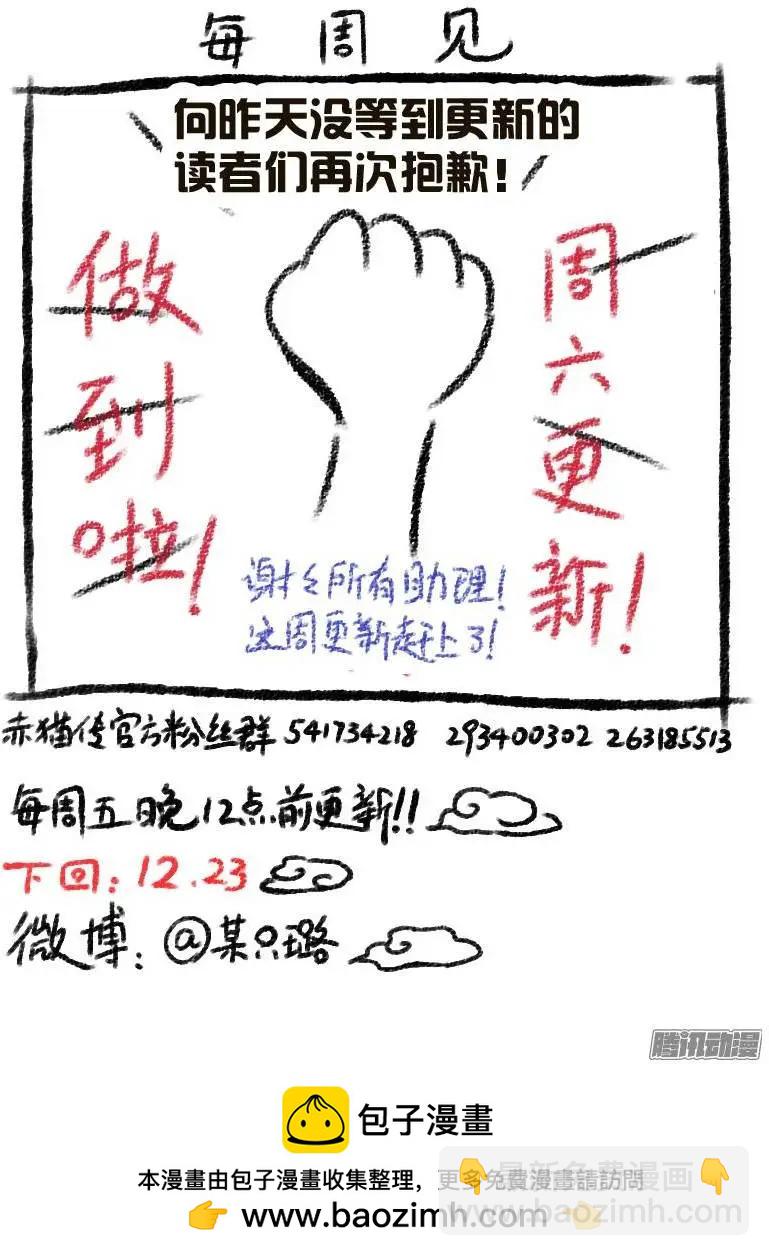 每周见
向昨天没等到更新的
读者们再次抱歉!
做到啦!
周六更新!
谢谢所有助理!
这周更新赶上了!
赤猫传官方粉丝群 541734218 293400302 263185513
每周五晚12点前更新!!
下回: 12.23
微博: @某只璐
腾讯动漫
包子漫畫
最新免費漫画
本漫畫由包子漫畫收集整理，更多免費漫畫請訪問
👉 www.baozimh.com